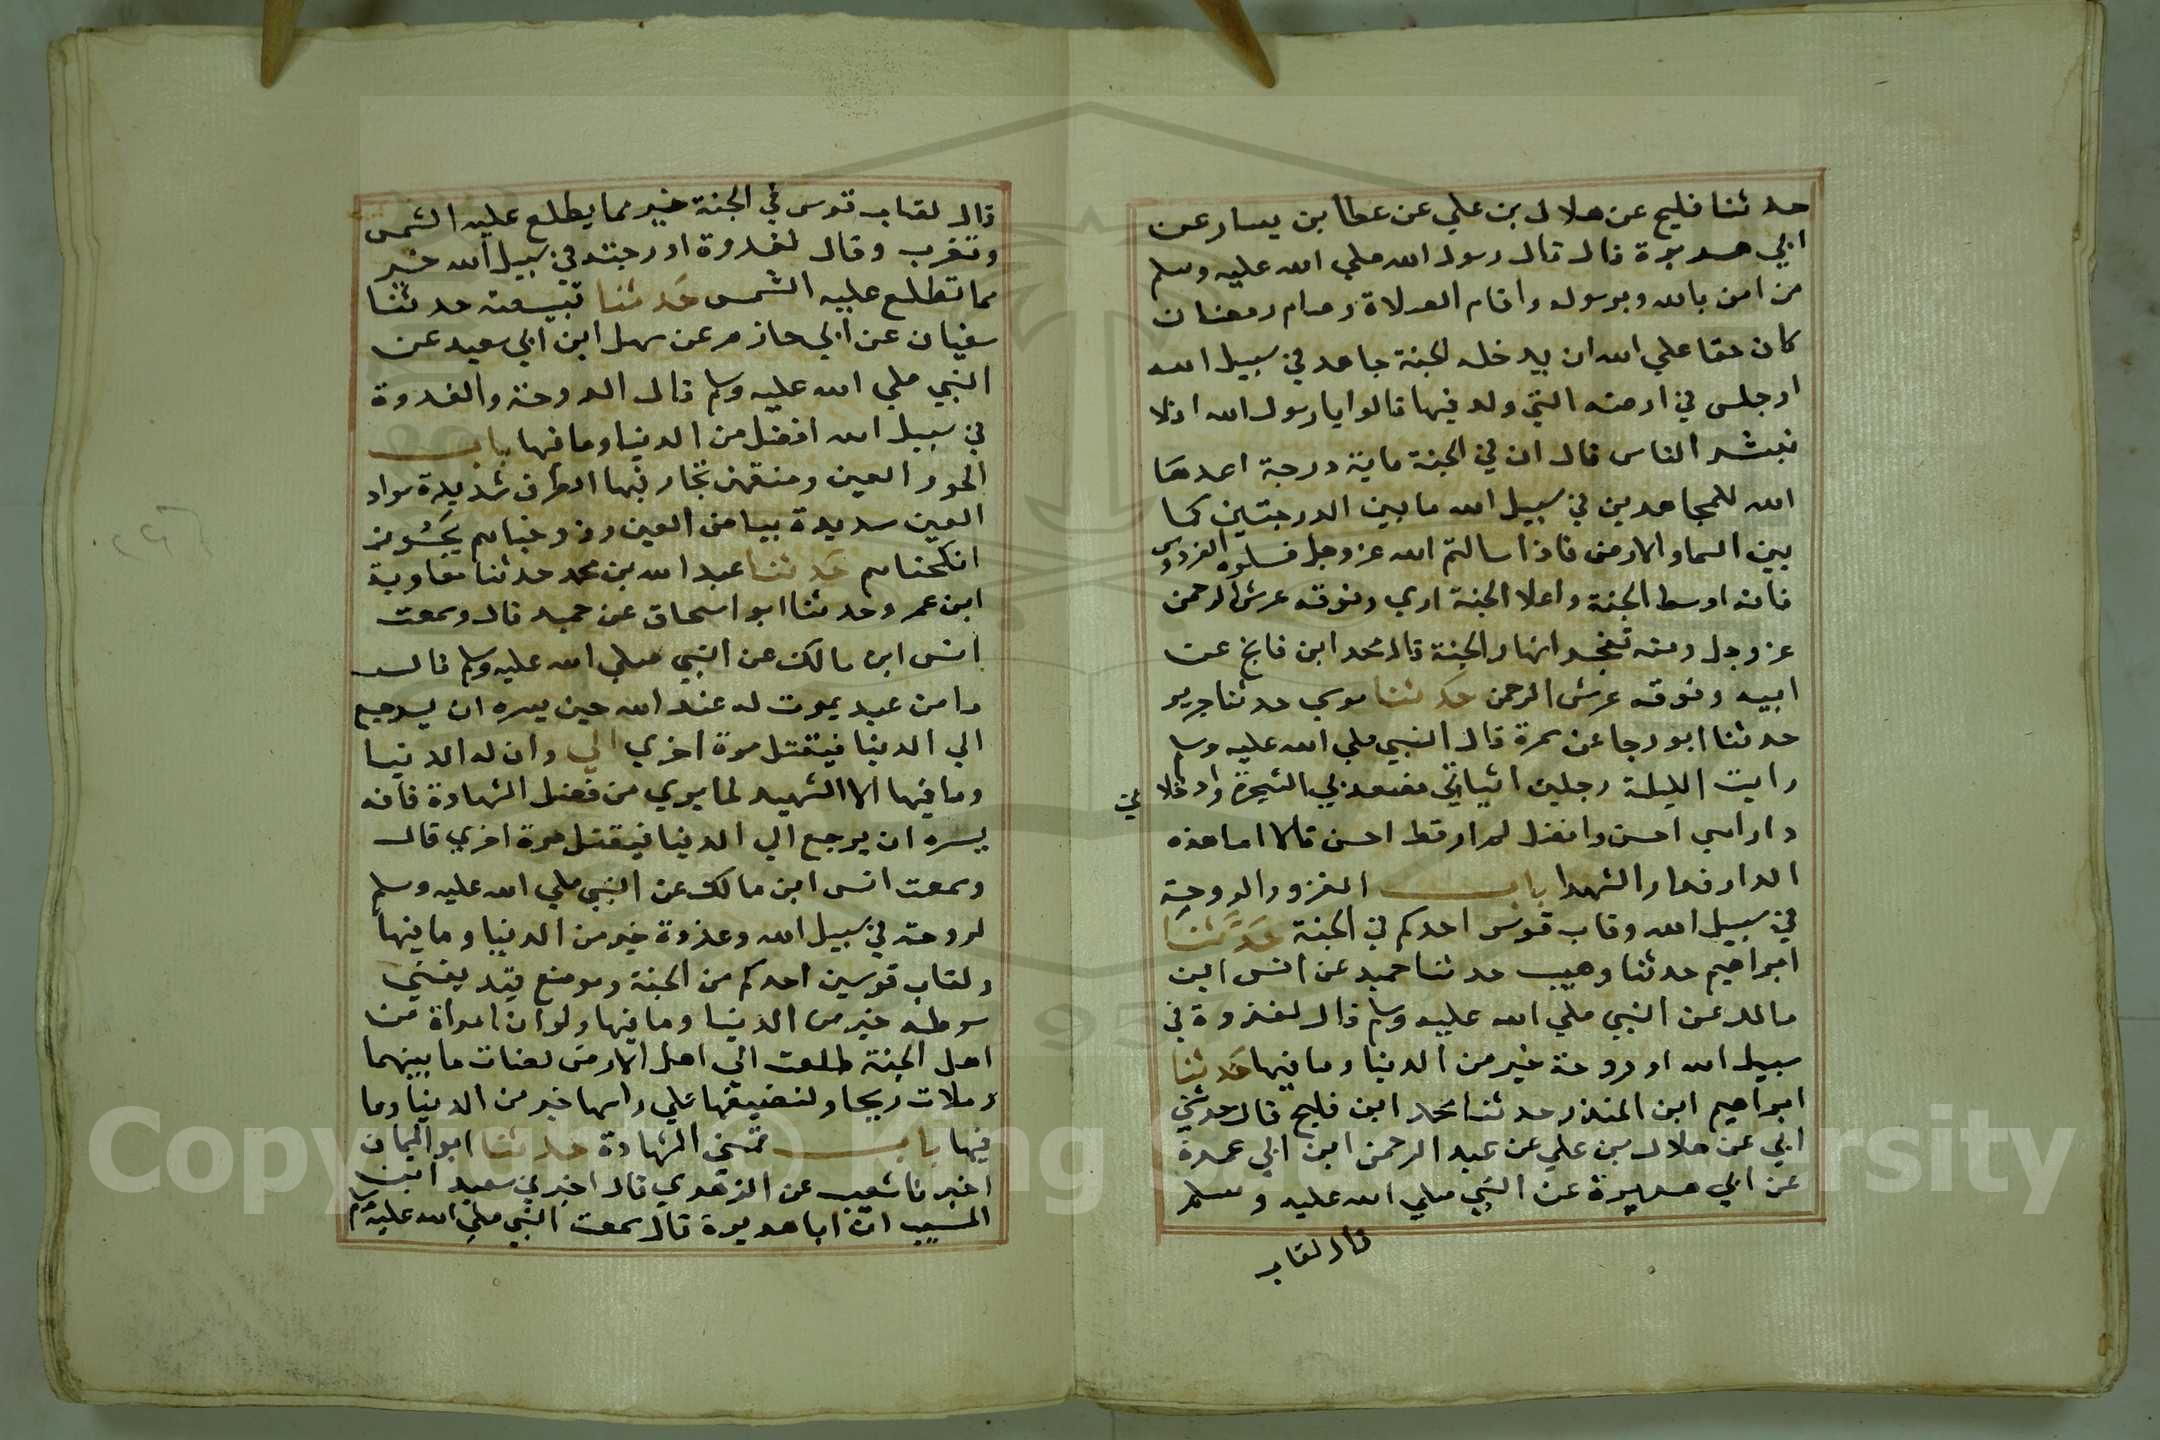 حدثنا فليح عن هلال بن علي عن عطا بن يسار عن
ابي هريرة قال قال رسول الله صلي الله عليه وسلم
من امن بالله وبرسوله واقام الصلاة وصام رمضان
كان حقا علي الله ان يدخله الجنة جاهد في سبيل الله
او جلس في ارضه التي ولد فيها قالوا يا رسول الله افلا
نبشر الناس قال ان في الجنة ماية درجة اعدها
الله للمجاهدين في سبيل الله ما بين الدرجتين كما
بين السما والارض فاذا سالتم الله عز وجل فسلوه الفردوس
فانه اوسط الجنة واعلا الجنة اري وفوقه عرش الرحمن
عز وجل ومنه تفجر انهار الجنة قال محمد ابن فليح عن
ابيه وفوقه عرش الرحمن حدثنا موسي حدثنا جرير
حدثنا ابو رجا عن سمرة قال النبي صلي الله عليه وسلم
رايت الليلة رجلين اتياني فصعد بي الشجرة وادخلا
ني
دارا هي احسن وافضل لم ار قط احسن قالا اما هذه
الدار فدار الشهدا باب الغزو والروحة
في سبيل الله وقاب قوس احدكم في الجنة حدثنا
ابراهيم حدثنا وهيب حدثنا حميد عن انس ابن
مالك عن النبي صلي الله عليه وسلم قال لغزوة في
سبيل الله او روحة خير من الدنيا وما فيها حدثنا
ابراهيم ابن المنذر حدثنا محمد ابن فليح قال حدثني
ابي عن هلال بن علي عن عبد الرحمن ابن ابي عمرة
عن ابي هريرة عن النبي صلي الله عليه وسلم
قال لقاب
قال لقاب قوس في الجنة خير مما يطلع عليه الشمس
وتغرب وقال لغدوة او رجتة في سبيل الله خير
مما تطلع عليه الشمس حدثنا قبيصة حدثنا
سفيان عن ابي حازم عن سهل ابن ابي سعيد عن
النبي صلي الله عليه وسلم قال الروحة والغدوة
في سبيل الله افضل من الدنيا وما فيها باب
الحور العين وصفتهن تحار فيها الطرف شديدة سواد
العين سديدة بياض العين وزوجناهم بحور
انكحناهم حدثنا عبد الله بن محمد حدثنا معاوية
ابن عمر وحدثنا ابو اسحاق عن حميد قال وسمعت
انس ابن مالك عن النبي صلي الله عليه وسلم قال
ما من عبد يموت له عند الله خير يسره ان يرجع
الي الدنيا فيقتل مرة اخري الي وان له الدنيا
وما فيها الا الشهيد لما يري من فضل الشهادة فانه
يسره ان يرجع الي الدنيا فيقتل مرة اخري قال
وسمعت انس ابن مالك عن النبي صلي الله عليه وسلم
لروحة في سبيل الله وغدوة خير من الدنيا وما فيها
ولقاب قوسين احدكم من الجنة وموضع قيد يعني
سوطه خير من الدنيا وما فيها ولو ان امراة من
اهل الجنة طلعت الي اهل الارض لضات ما بينهما
وملات ريحا ولنضيفها علي راسها خير من الدنيا وما
فيها باب تمني الشهادة حدثنا ابو اليمان
اخبرنا شعيب عن الزهري قال اخبرني سعيد ابن
المسيب ان ابا هريرة قال سمعت النبي صلي الله عليه وسلم
Copyright © King Saud University